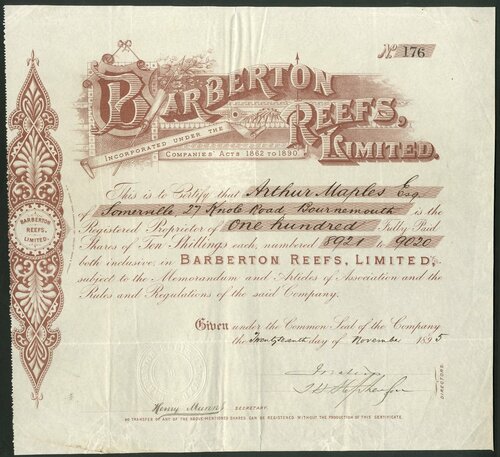 No 176
BARBERTON
REEFS,
LIMITED.
INCORPORATED UNDER THE
COMPANIES' ACTS 1862 TO 1890.
This is to Certify that Arthur Maples Esq
of Somerville 27 Knole Road Bournemouth is the
Registered Proprietor of One hundred Fully Paid
Shares of Ten Shillings each, numbered 8921 to 9020
both inclusive, in BARBERTON REEFS, LIMITED,
subject to the Memorandum and Articles of Association and the
Rules and Regulations of the said Company.
BARBERTON
REEFS,
LIMITED.
Given under the Common Seal of the Company
the day of November 1895
DIRECTORS.
Henry SECRETARY.
NO TRANSFER OF ANY OF THE ABOVE-MENTIONED SHARES CAN BE REGISTERED WITHOUT THE PRODUCTION OF THIS CERTIFICATE.